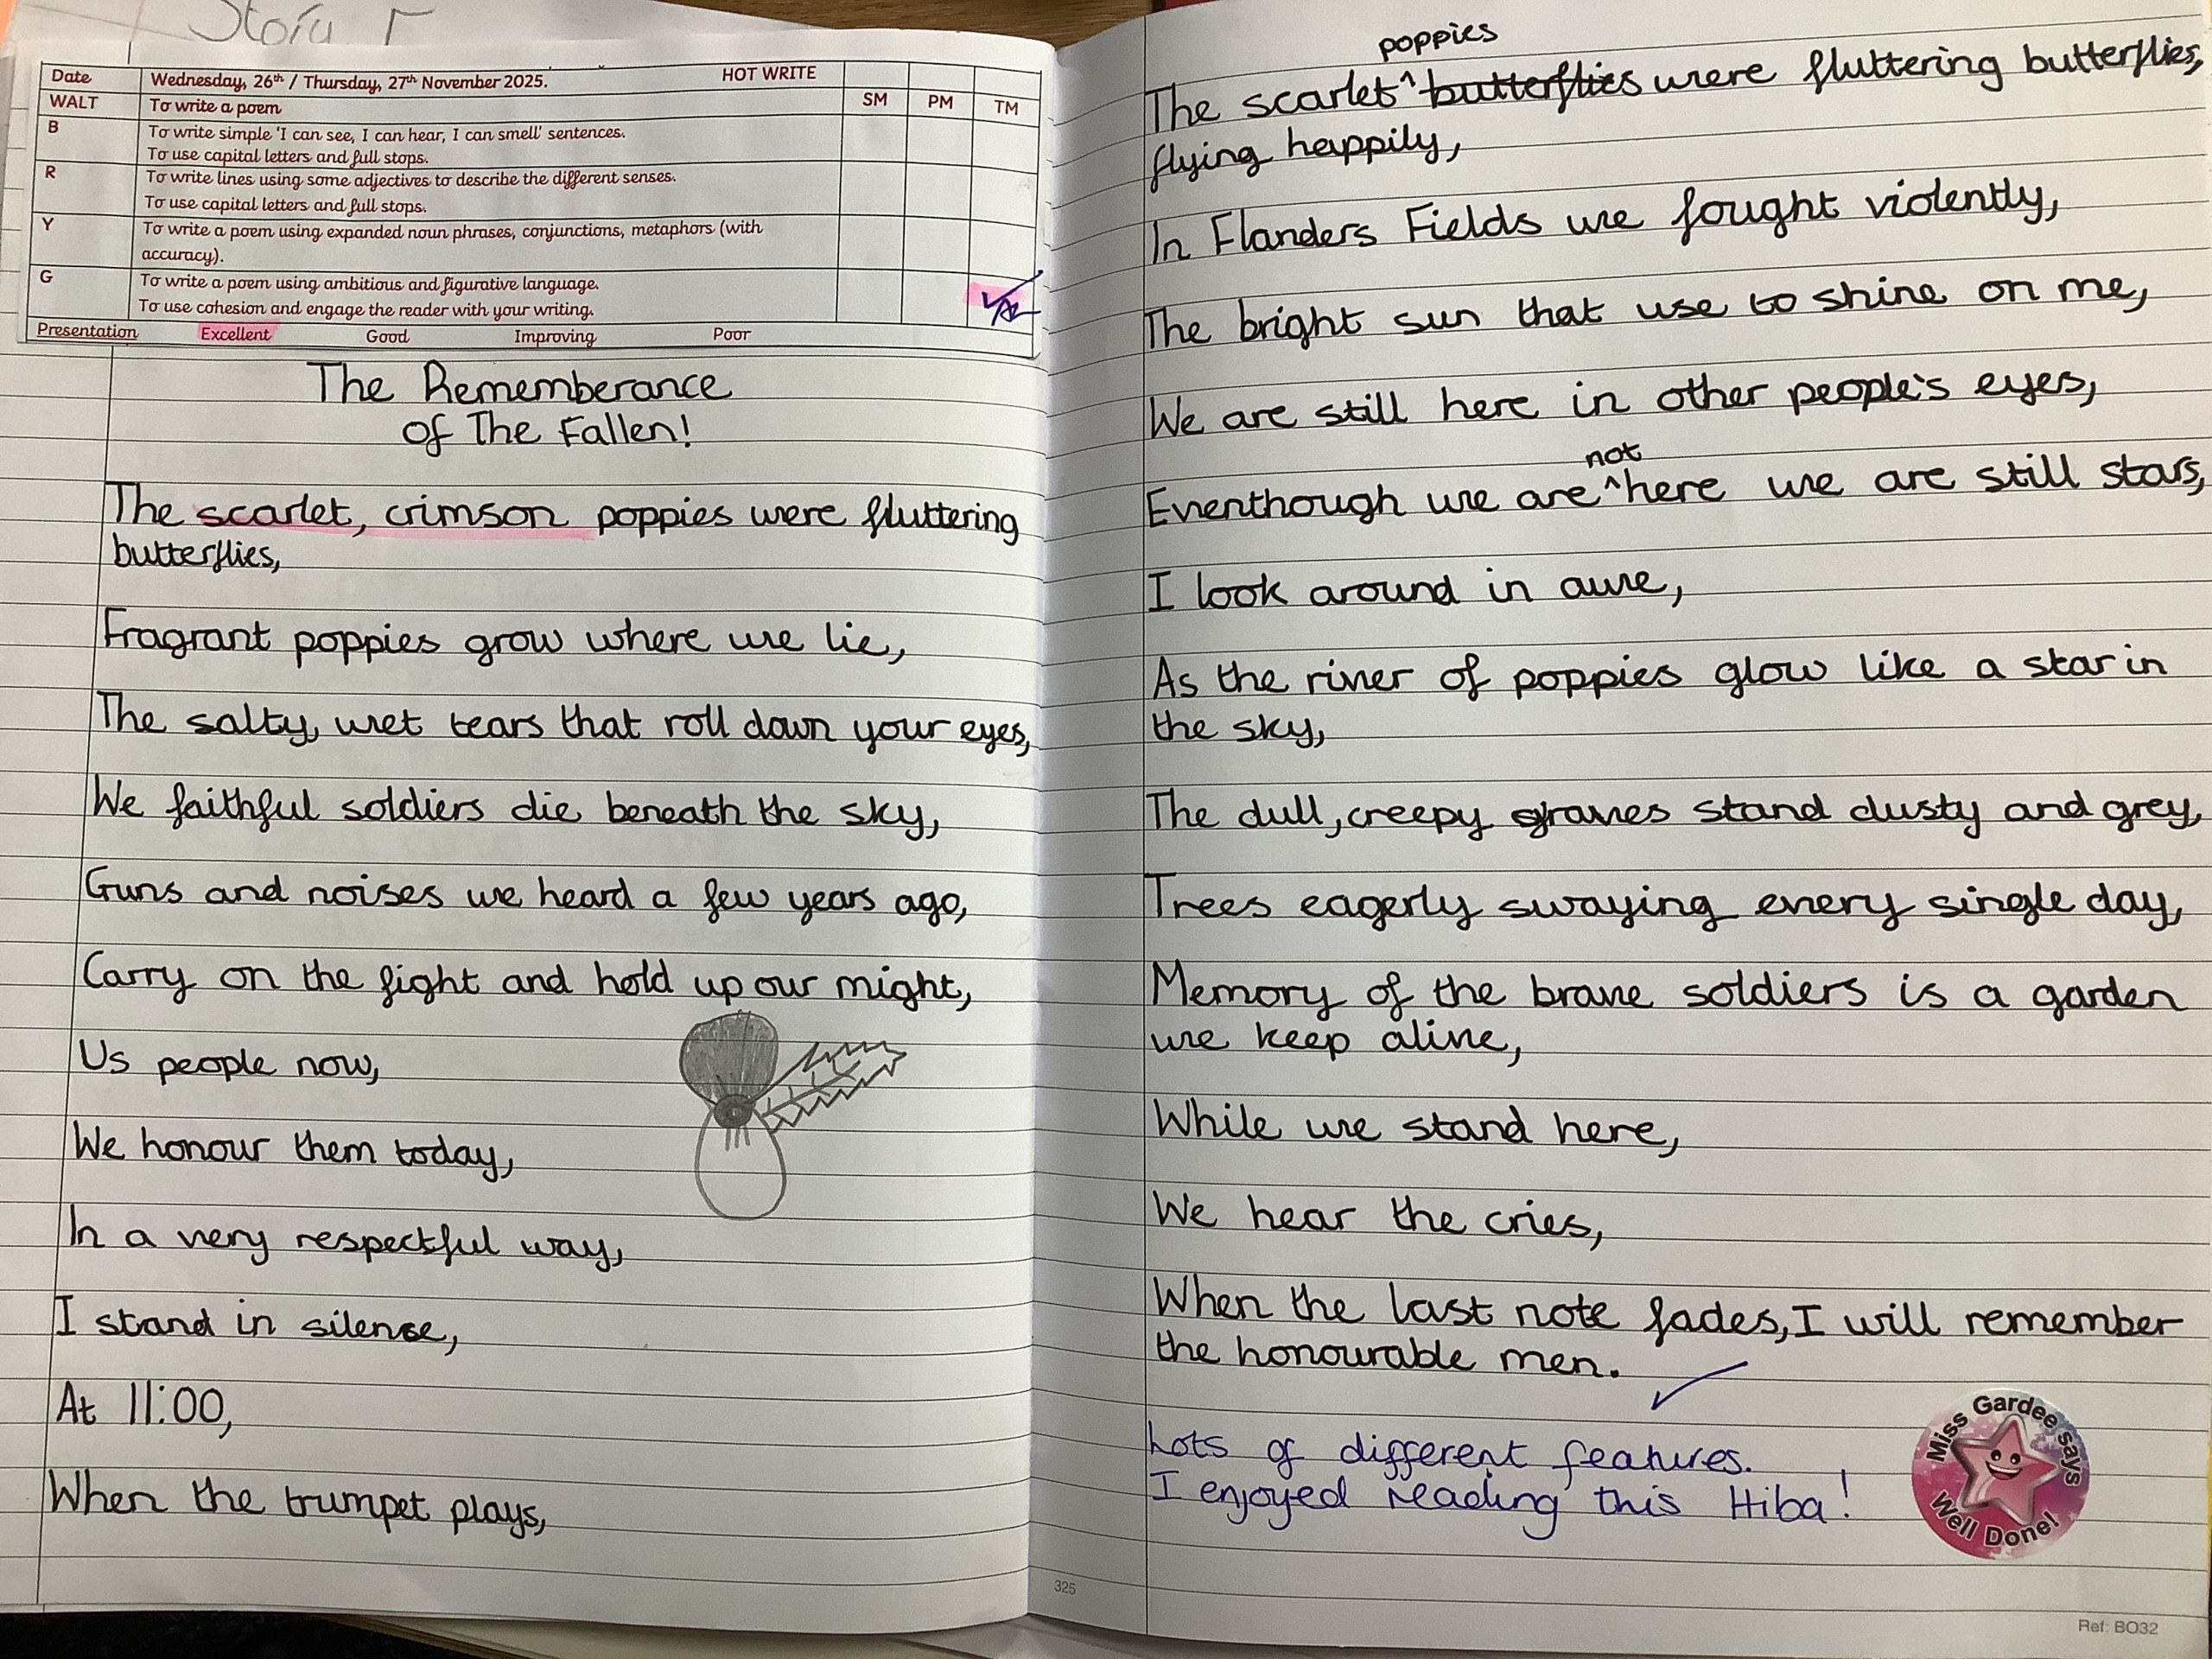 Story
Date Wednesday, 26th / Thursday, 27th November 2025. HOT WRITE
WALT To write a poem SM PM TM
B To write simple 'I can see, I can hear, I can smell' sentences.
To use capital letters and full stops.
R To write lines using some adjectives to describe the different senses.
To use capital letters and full stops.
Y To write a poem using expanded noun phrases, conjunctions, metaphors (with
accuracy).
G To write a poem using ambitious and figurative language.
To use cohesion and engage the reader with your writing.
Presentation Excellent Good Improving Poor
The Rememberance
of The Fallen!
The scarlet, crimson poppies were fluttering
butterflies,
Fragrant poppies grow where we lie,
The salty, wet tears that roll down your eyes,
We faithful soldiers die beneath the sky,
Guns and noises we heard a few years ago,
Carry on the fight and hold up our might,
Us people now,
We honour them today,
In a very respectful way,
I stand in silence,
At 11:00,
When the trumpet plays,
325
poppies
The scarlet ^ butterflies were fluttering butterflies,
flying happily,
In Flanders Fields we fought violently,
The bright sun that use to shine on me,
We are still here in other people's eyes,
not
Eventhough we are ^ here we are still stars,
I look around in awe,
As the river of poppies glow like a star in
the sky,
The dull, creepy graves stand dusty and grey,
Trees eagerly swaying every single day,
Memory of the brave soldiers is a garden
we keep alive,
While we stand here,
We hear the cries,
When the last note fades, I will remember
the honourable men.
Lots of different features.
I enjoyed reading this Hiba!
Miss Gardee says
Well Done!
Ref: BO32